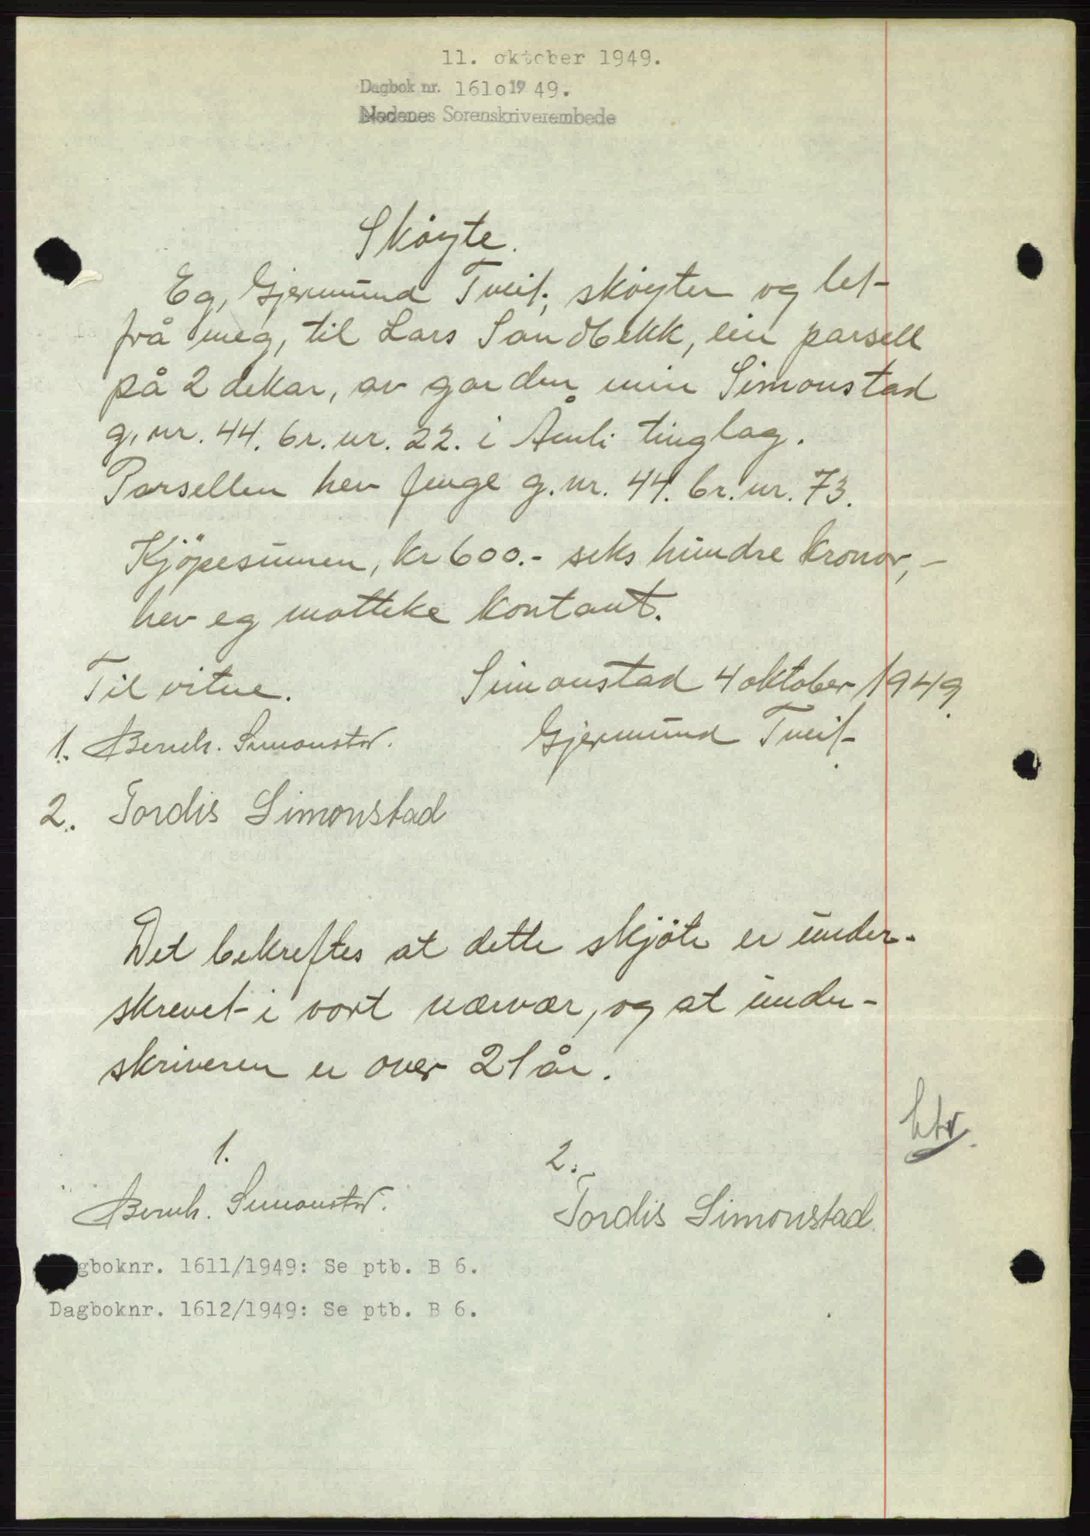 11. oktober 1949.
Dagbok nr. 1610 19 49.
Nedenes Sorenskriverembede
Skøyte.
Eg, Gjermund Tveit, skøyter og let
frå meg, til Lars Sandbekk, ein parsell
på 2 dekar, av garden min Simonstad
g. nr. 44. br. nr. 22. i Åmli tinglag.
Parsellen hev fenge g. nr. 44. br. nr. 73.
Kjöpesumen, kr 600.- seks hundre kronor,-
hev eg motteke kontant.
Til vitne. Simonstad 4 oktober 1949.
1. Bernh. Simonstad. Gjermund Tveit.
2. Tordis Simonstad
Det bekreftes at dette skjöte er under-
skrevet i vort nærvær, og at under-
skriveren er over 21 år.
1. 2.
Bernh. Simonstad. Tordis Simonstad
gboknr. 1611/1949: Se ptb. B 6.
Dagboknr. 1612/1949: Se ptb. B 6.